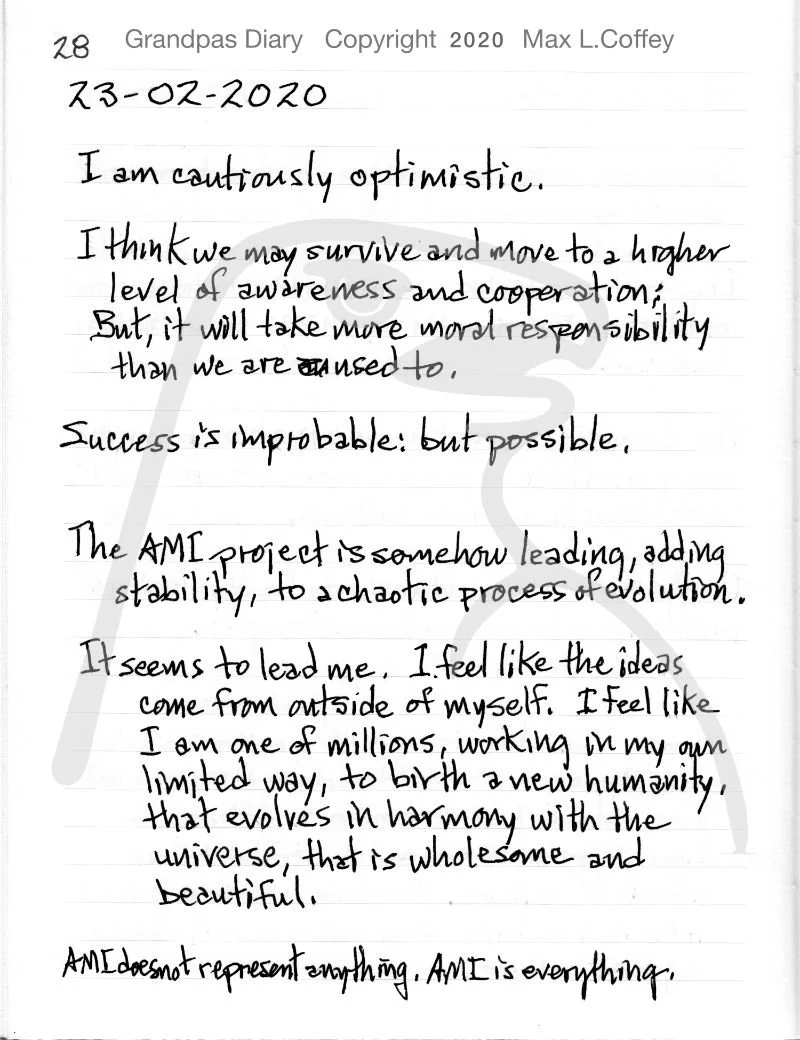 28 Grandpas Diary Copyright 2020 Max L.Coffey
23-02-2020
I am cautiously optimistic.
I think we may survive and move to a higher
level of awareness and cooperation;
But, it will take more moral responsibility
than we are used to.
Success is improbable: but possible.
The AMI project is somehow leading, adding
stability, to a chaotic process of evolution.
It seems to lead me. I feel like the ideas
come from outside of myself. I feel like
I am one of millions, working in my own
limited way, to birth a new humanity,
that evolves in harmony with the
universe, that is wholesome and
beautiful.
AMI does not represent anything. AMI is everything.